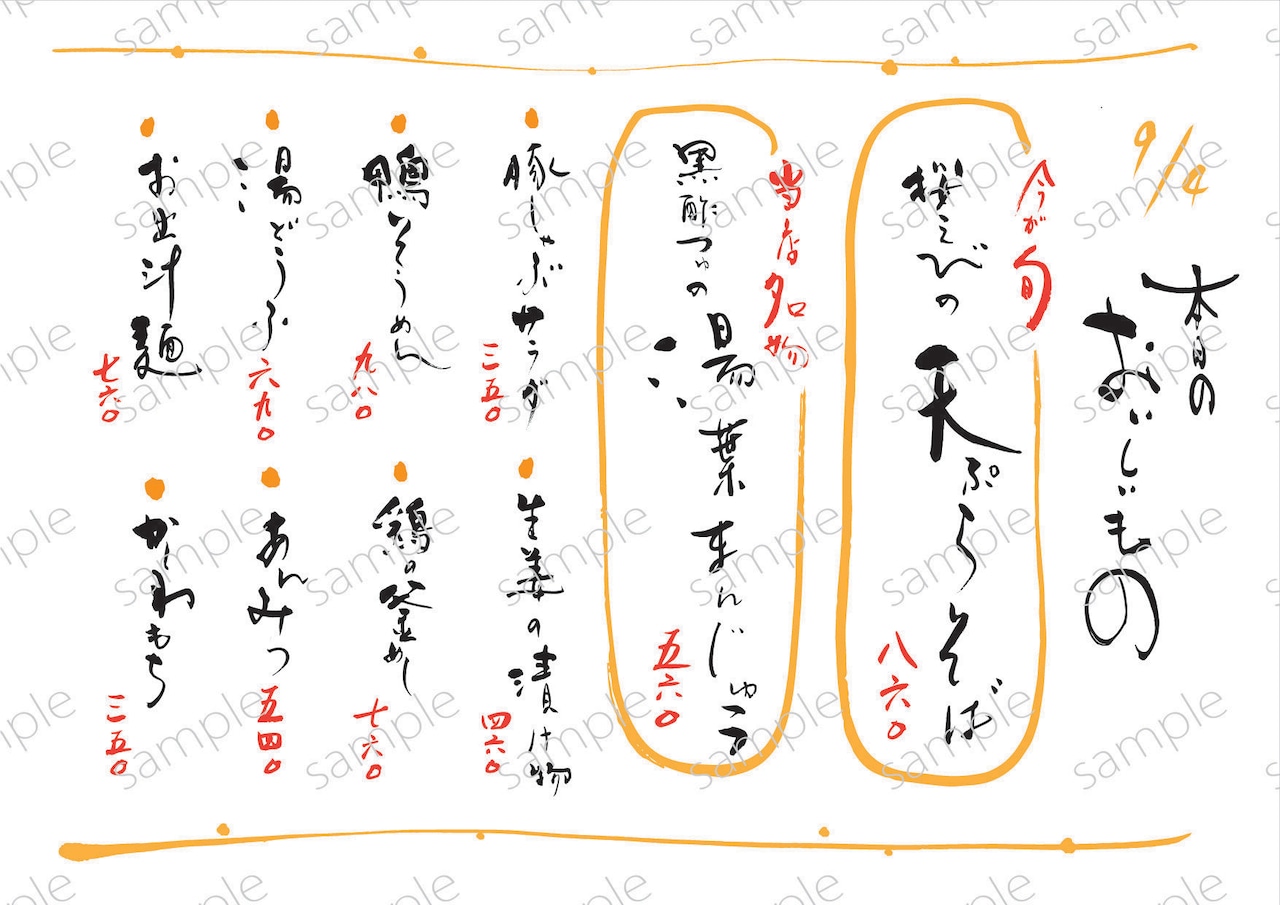 9/4
本日の
おいしいもの
今が旬
桜えびの天ぷらそば
八六〇
当店名物
黒酢つゆの湯葉まんじゅう
五六〇
豚しゃぶサラダ
三五〇
鴨そうめん
九八〇
湯どうふ
六九〇
お出汁麺
七六〇
生姜の漬け物
四六〇
鶏の釜めし
七六〇
あんみつ
五四〇
かわもち
三五〇
sample